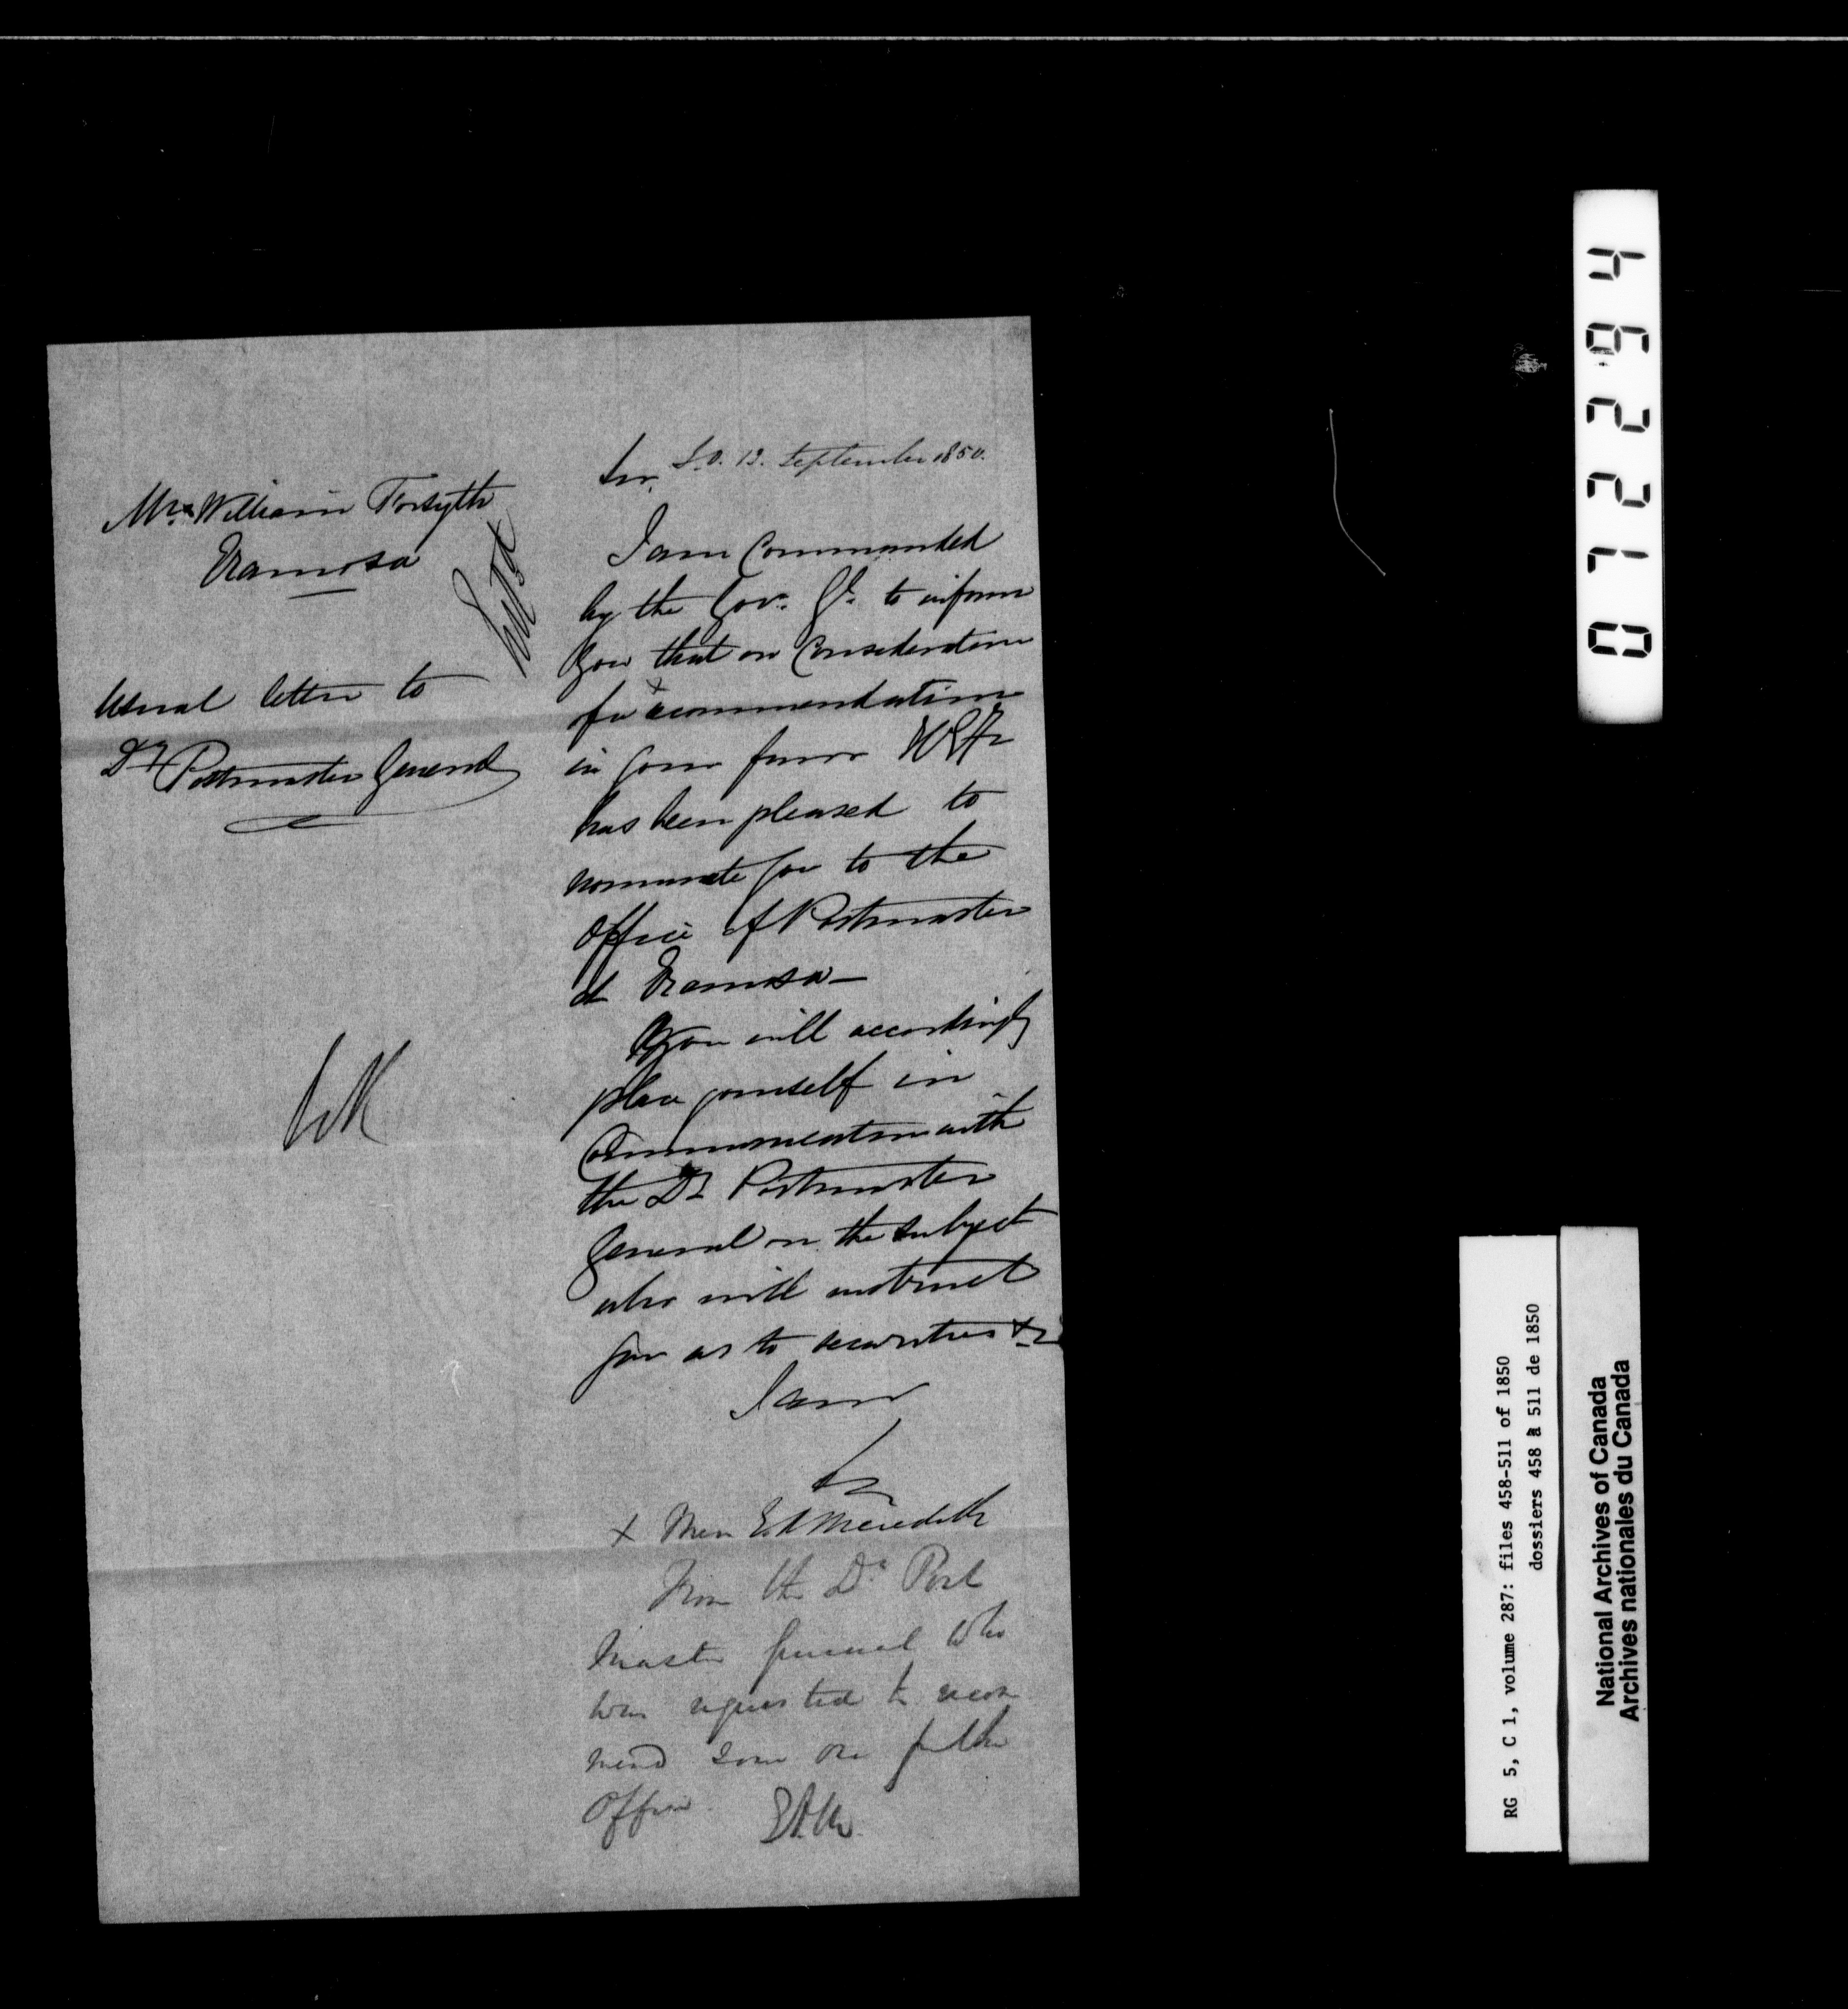 S.O. 12. September 1850.
Sir,
Mr. William Forsyth
Eramosa
Usual letter to
Dy Postmaster General
I am Commanded
by the Gov. Gl. to inform
you that on Consideration
of a recommendation
in your favor H Ex
has been pleased to
nominate you to the
Office of Postmaster
at Eramosa—
You will accordingly
place yourself in
Communication with
the Dy Postmaster
General on the subject
who will instruct
you as to securities &c
I am
x Mem E A Meredith
From the Dy Post
Master General who
was requested to recom
mend some one for the
Office.
EAM.
072264
RG 5, C 1, volume 287: files 458-511 of 1850
dossiers 458 à 511 de 1850
National Archives of Canada
Archives nationales du Canada